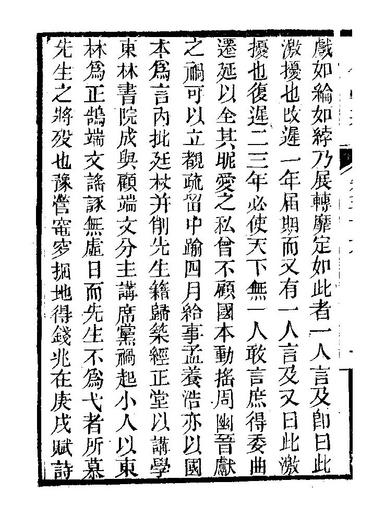 戲如綸如綍乃展轉靡定如此者一人言及卽曰此
激擾也改遲一年屆期而又有一人言及又曰此激
擾也復遲二三年必使天下無一人敢言庶得委曲
遷延以全其昵愛之私曾不顧國本動搖周幽晉獻
之禍可以立覩疏留中踰四月給事孟養浩亦以國
本爲言内批廷杖并削先生籍歸築經正堂以講學
東林書院成與顧端文分主講席黨禍起小人以東
林爲正鵠端文謠諑無虛日而先生不爲弋者所慕
先生之將歿也豫營窀穸掘地得錢兆在庚戌賦詩